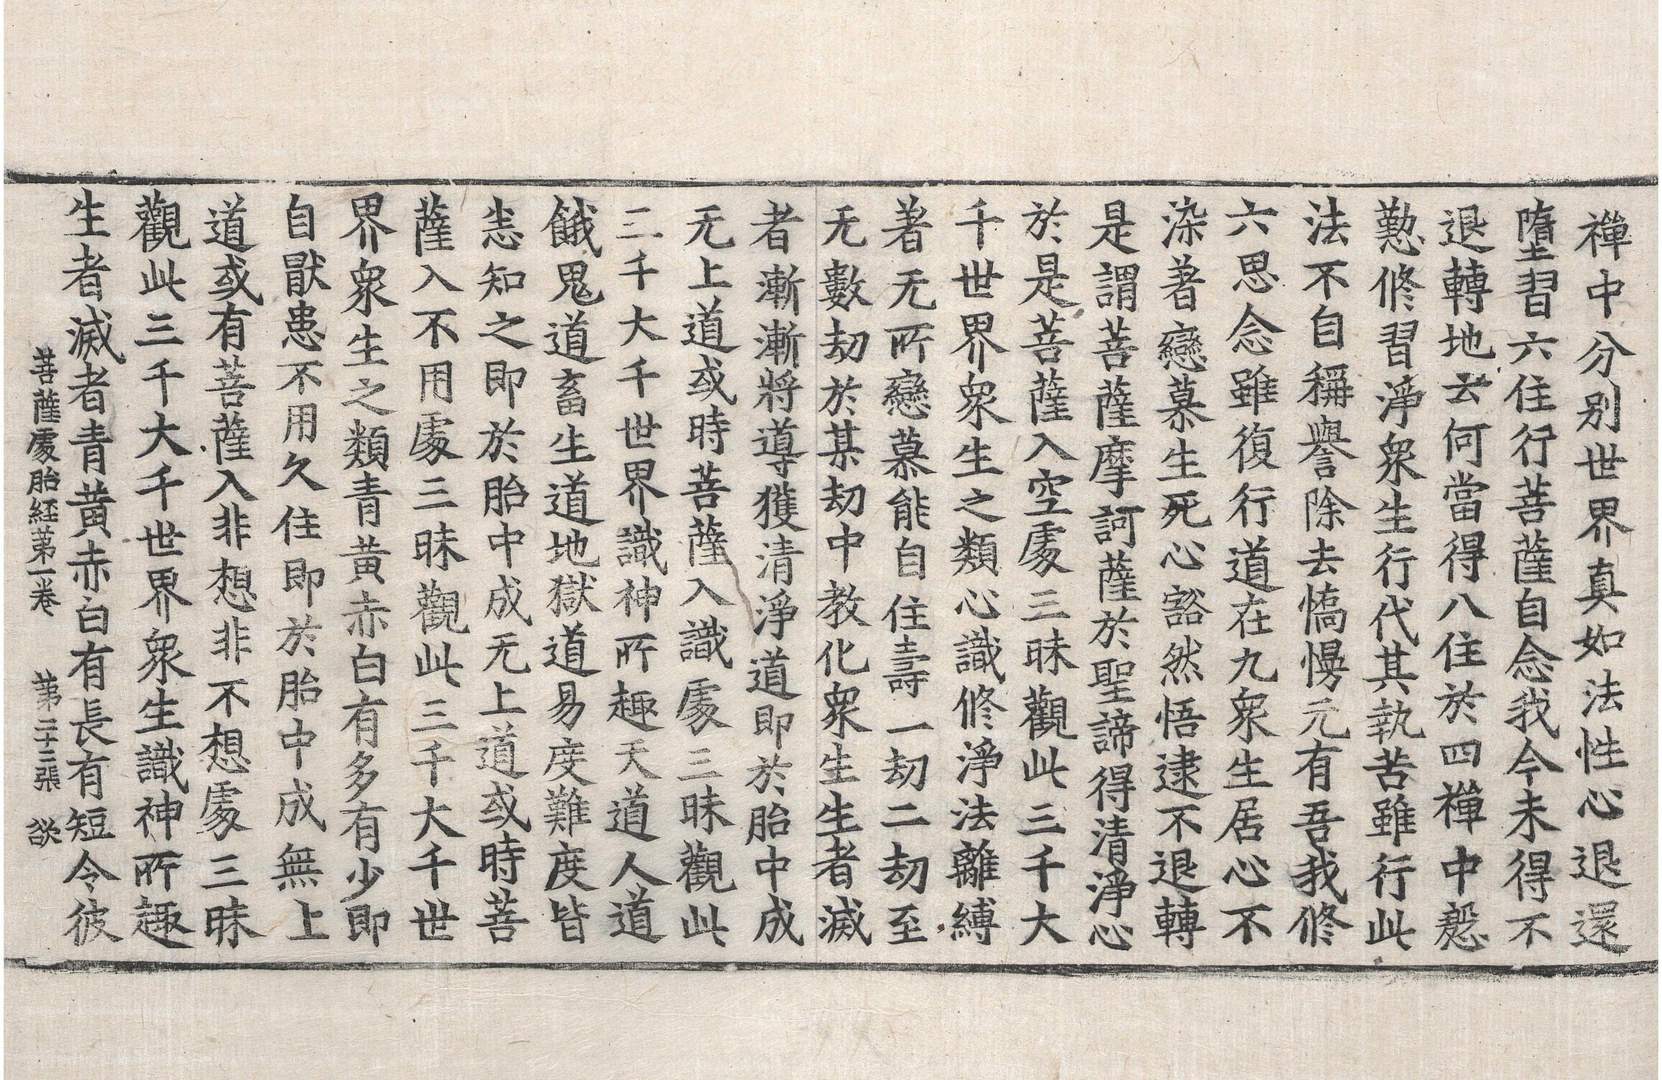 禪中分別世界真如法性心退還
墮習六住行菩薩自念我今未得不
退轉地云何當得八住於四禪中慇
懃修習淨衆生行代其執苦雖行此
法不自稱譽除去憍慢元有吾我修
六思念雖復行道在九衆生居心不
染著戀慕生死心豁然悟逮不退轉
是謂菩薩摩訶薩於聖諦得清淨心
於是菩薩入空處三昧觀此三千大
千世界衆生之類心識修淨法離縛
著无所戀慕能自住壽一劫二劫至
无數劫於某劫中教化衆生生者滅
者漸漸將導獲清淨道即於胎中成
无上道或時菩薩入識處三昧觀此
三千大千世界識神所趣天道人道
餓鬼道畜生道地獄道易度難度皆
悉知之即於胎中成无上道或時菩
薩入不用處三昧觀此三千大千世
界衆生之類青黃赤白有多有少即
自猒患不用久住即於胎中成無上
道或有菩薩入非想非不想處三昧
觀此三千大千世界衆生識神所趣
生者滅者青黃赤白有長有短令彼
菩薩處胎經第一卷 第二十二張 談